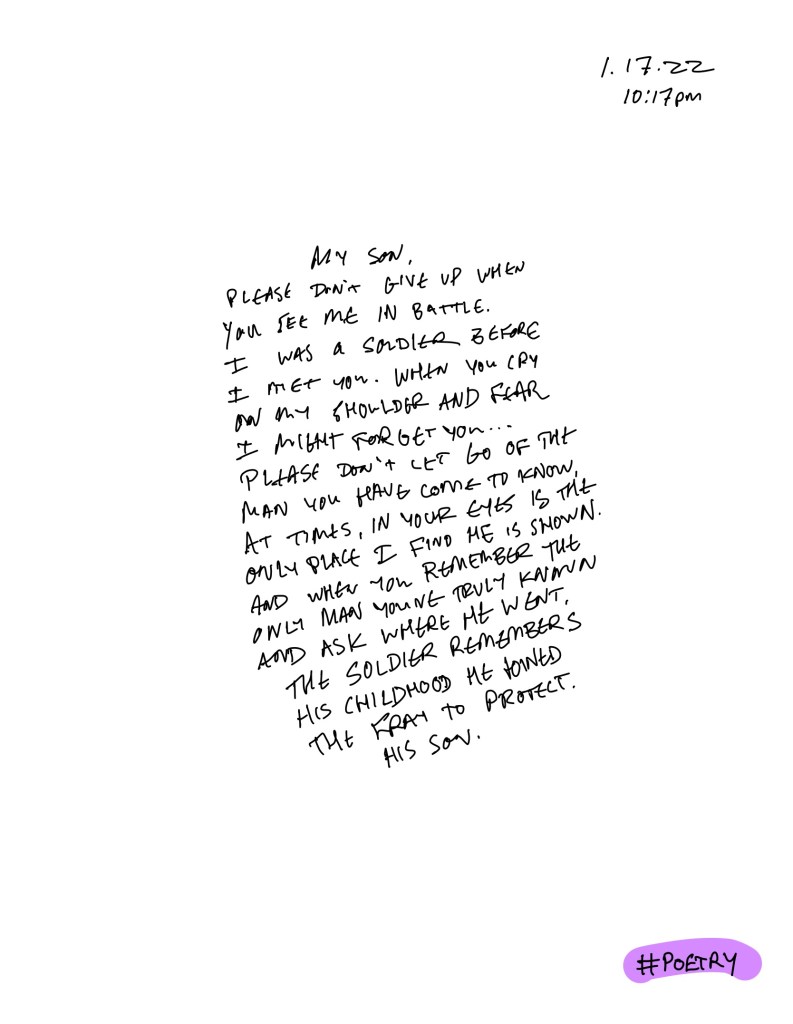 1.17.22
10:17pm
MY SON,
PLEASE DON'T GIVE UP WHEN
YOU SEE ME IN BATTLE.
I WAS A SOLDIER BEFORE
I MET YOU. WHEN YOU CRY
ON MY SHOULDER AND FEAR
I MIGHT FORGET YOU...
PLEASE DON'T LET GO OF THE
MAN YOU HAVE COME TO KNOW,
AT TIMES, IN YOUR EYES IS THE
ONLY PLACE I FIND HE IS SHOWN.
AND WHEN YOU REMEMBER THE
ONLY MAN YOU'VE TRULY KNOWN
AND ASK WHERE HE WENT,
THE SOLDIER REMEMBERS
HIS CHILDHOOD HE JOINED
THE FRAY TO PROTECT.
HIS SON.
#POETRY